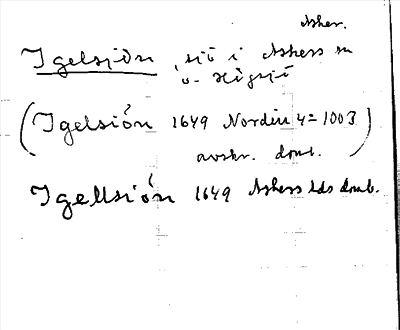 Asker.
Igelsjön, sjö i Askers sn
o. Högsjö
(Igelsión 1649 Nordin 4=1003)
avskr. domb.
Igellsión 1649 Askers hds domb.